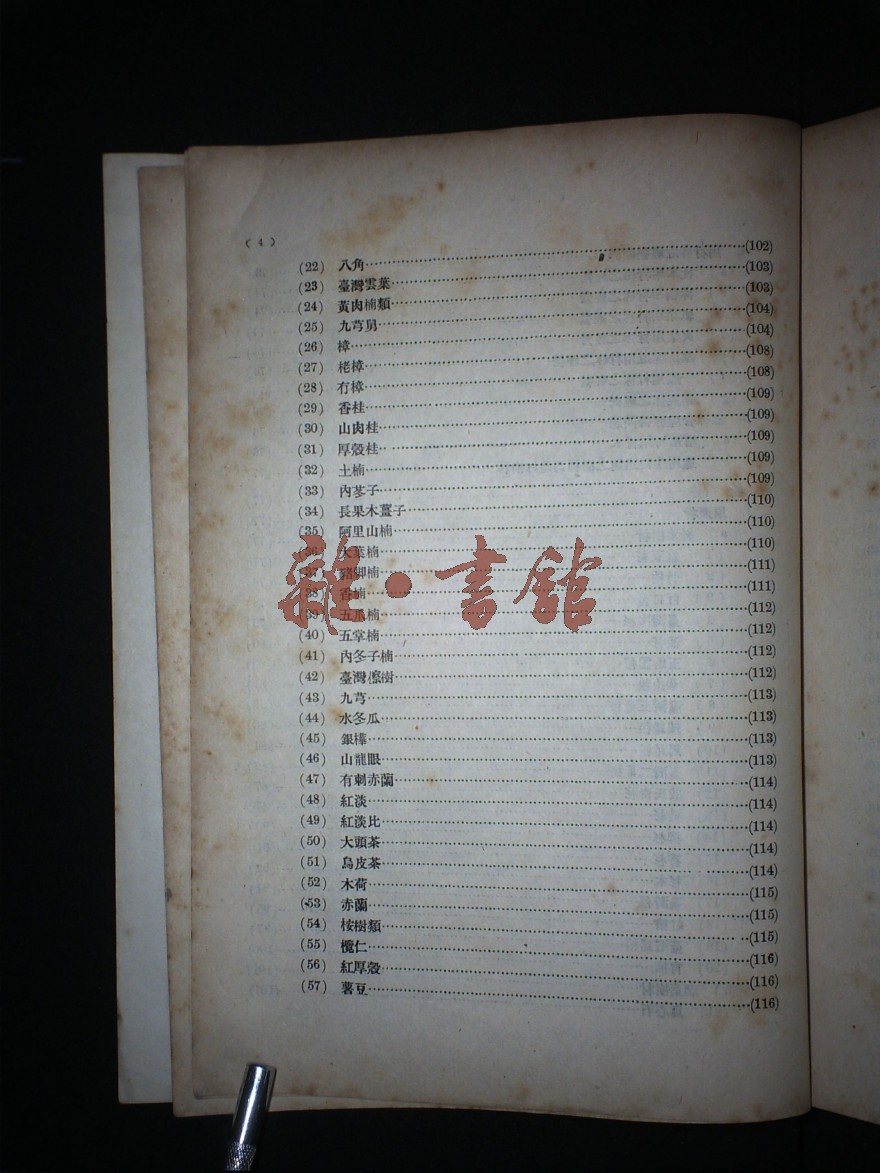 (4)
(22) 八角……(102)
(23) 臺灣雲葉……(103)
(24) 黃肉楠類……(103)
(25) 九芎舅……(104)
(26) 樟……(104)
(27) 栳樟……(108)
(28) 冇樟……(108)
(29) 香桂……(109)
(30) 山肉桂……(109)
(31) 厚殼桂……(109)
(32) 土楠……(109)
(33) 內苳子……(109)
(34) 長果木薑子……(110)
(35) 阿里山楠……(110)
(36) 大葉楠……(110)
(37) 豬脚楠……(111)
(38) 香楠……(111)
(39) 五爪楠……(112)
(40) 五掌楠……(112)
(41) 內冬子楠……(112)
(42) 臺灣檫樹……(112)
(43) 九芎……(113)
(44) 水冬瓜……(113)
(45) 銀樺……(113)
(46) 山龍眼……(113)
(47) 有刺赤蘭……(114)
(48) 紅淡……(114)
(49) 紅淡比……(114)
(50) 大頭茶……(114)
(51) 烏皮茶……(114)
(52) 木荷……(115)
(53) 赤蘭……(115)
(54) 桉樹類……(115)
(55) 欖仁……(116)
(56) 紅厚殼……(116)
(57) 薯豆……(116)
雜•書館